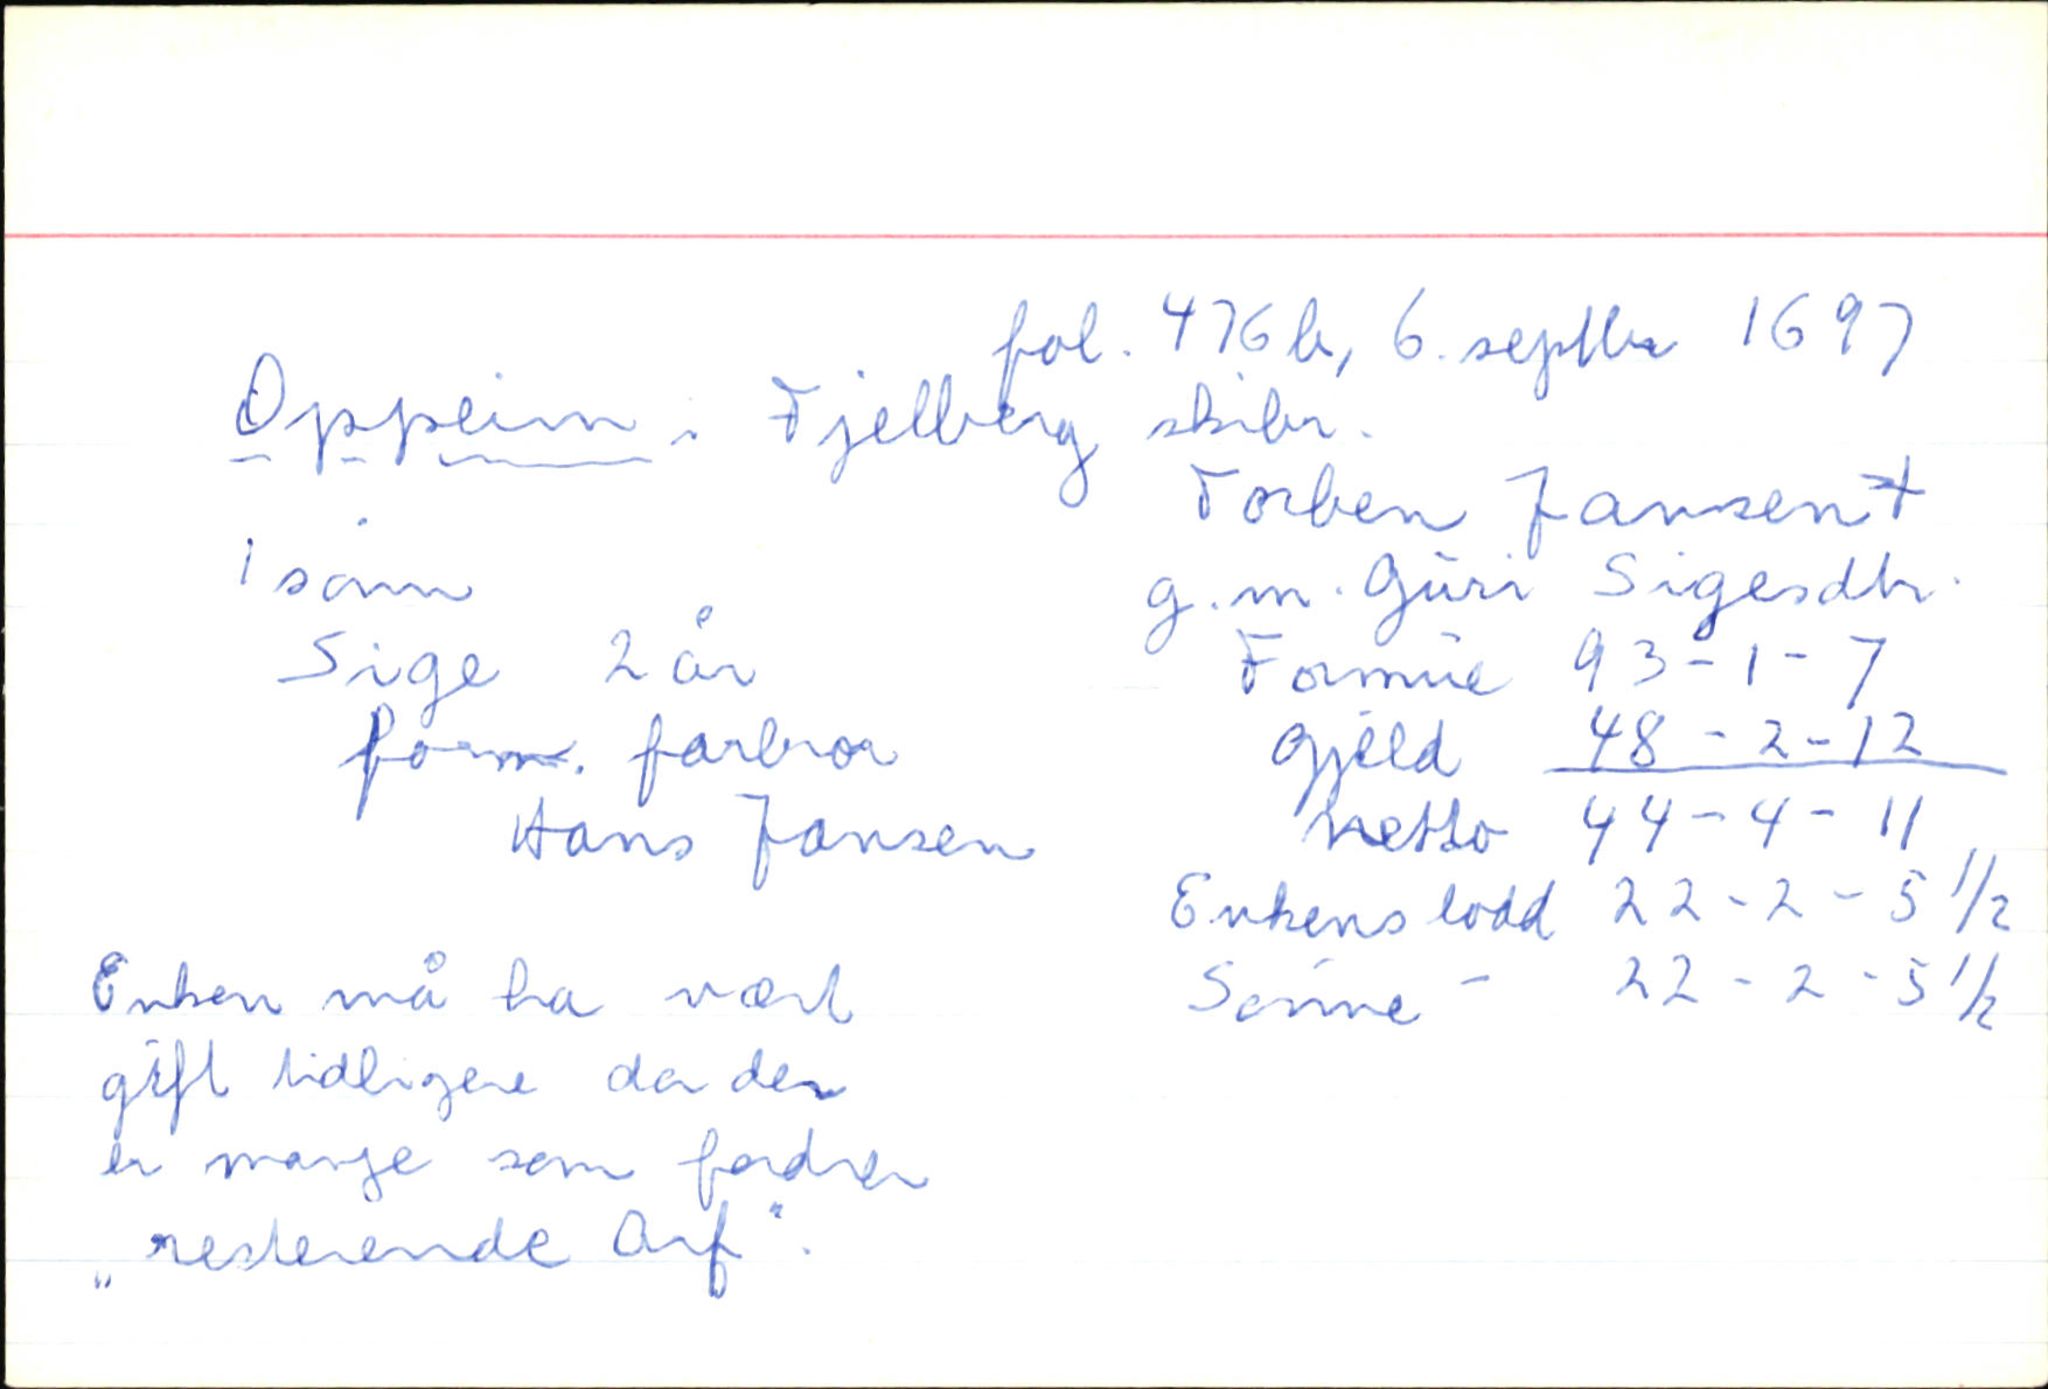 fol. 476b, 6. septbr 1697
Oppeim i Fjelberg skibr.
Torben Jansen †
g.m. Guri Sigesdtr.
Formue 93-1-7
Gjeld 48-2-12
Netto 44-4-11
Enkens lodd 22-2-5 1/2
Sønne - 22-2-5 1/2
1 sønn
Sige 2 år
form. farbror
Hans Jansen
Enken må ha vært
gift tidligere da der
er mange som fordrer
„resterende Arf".